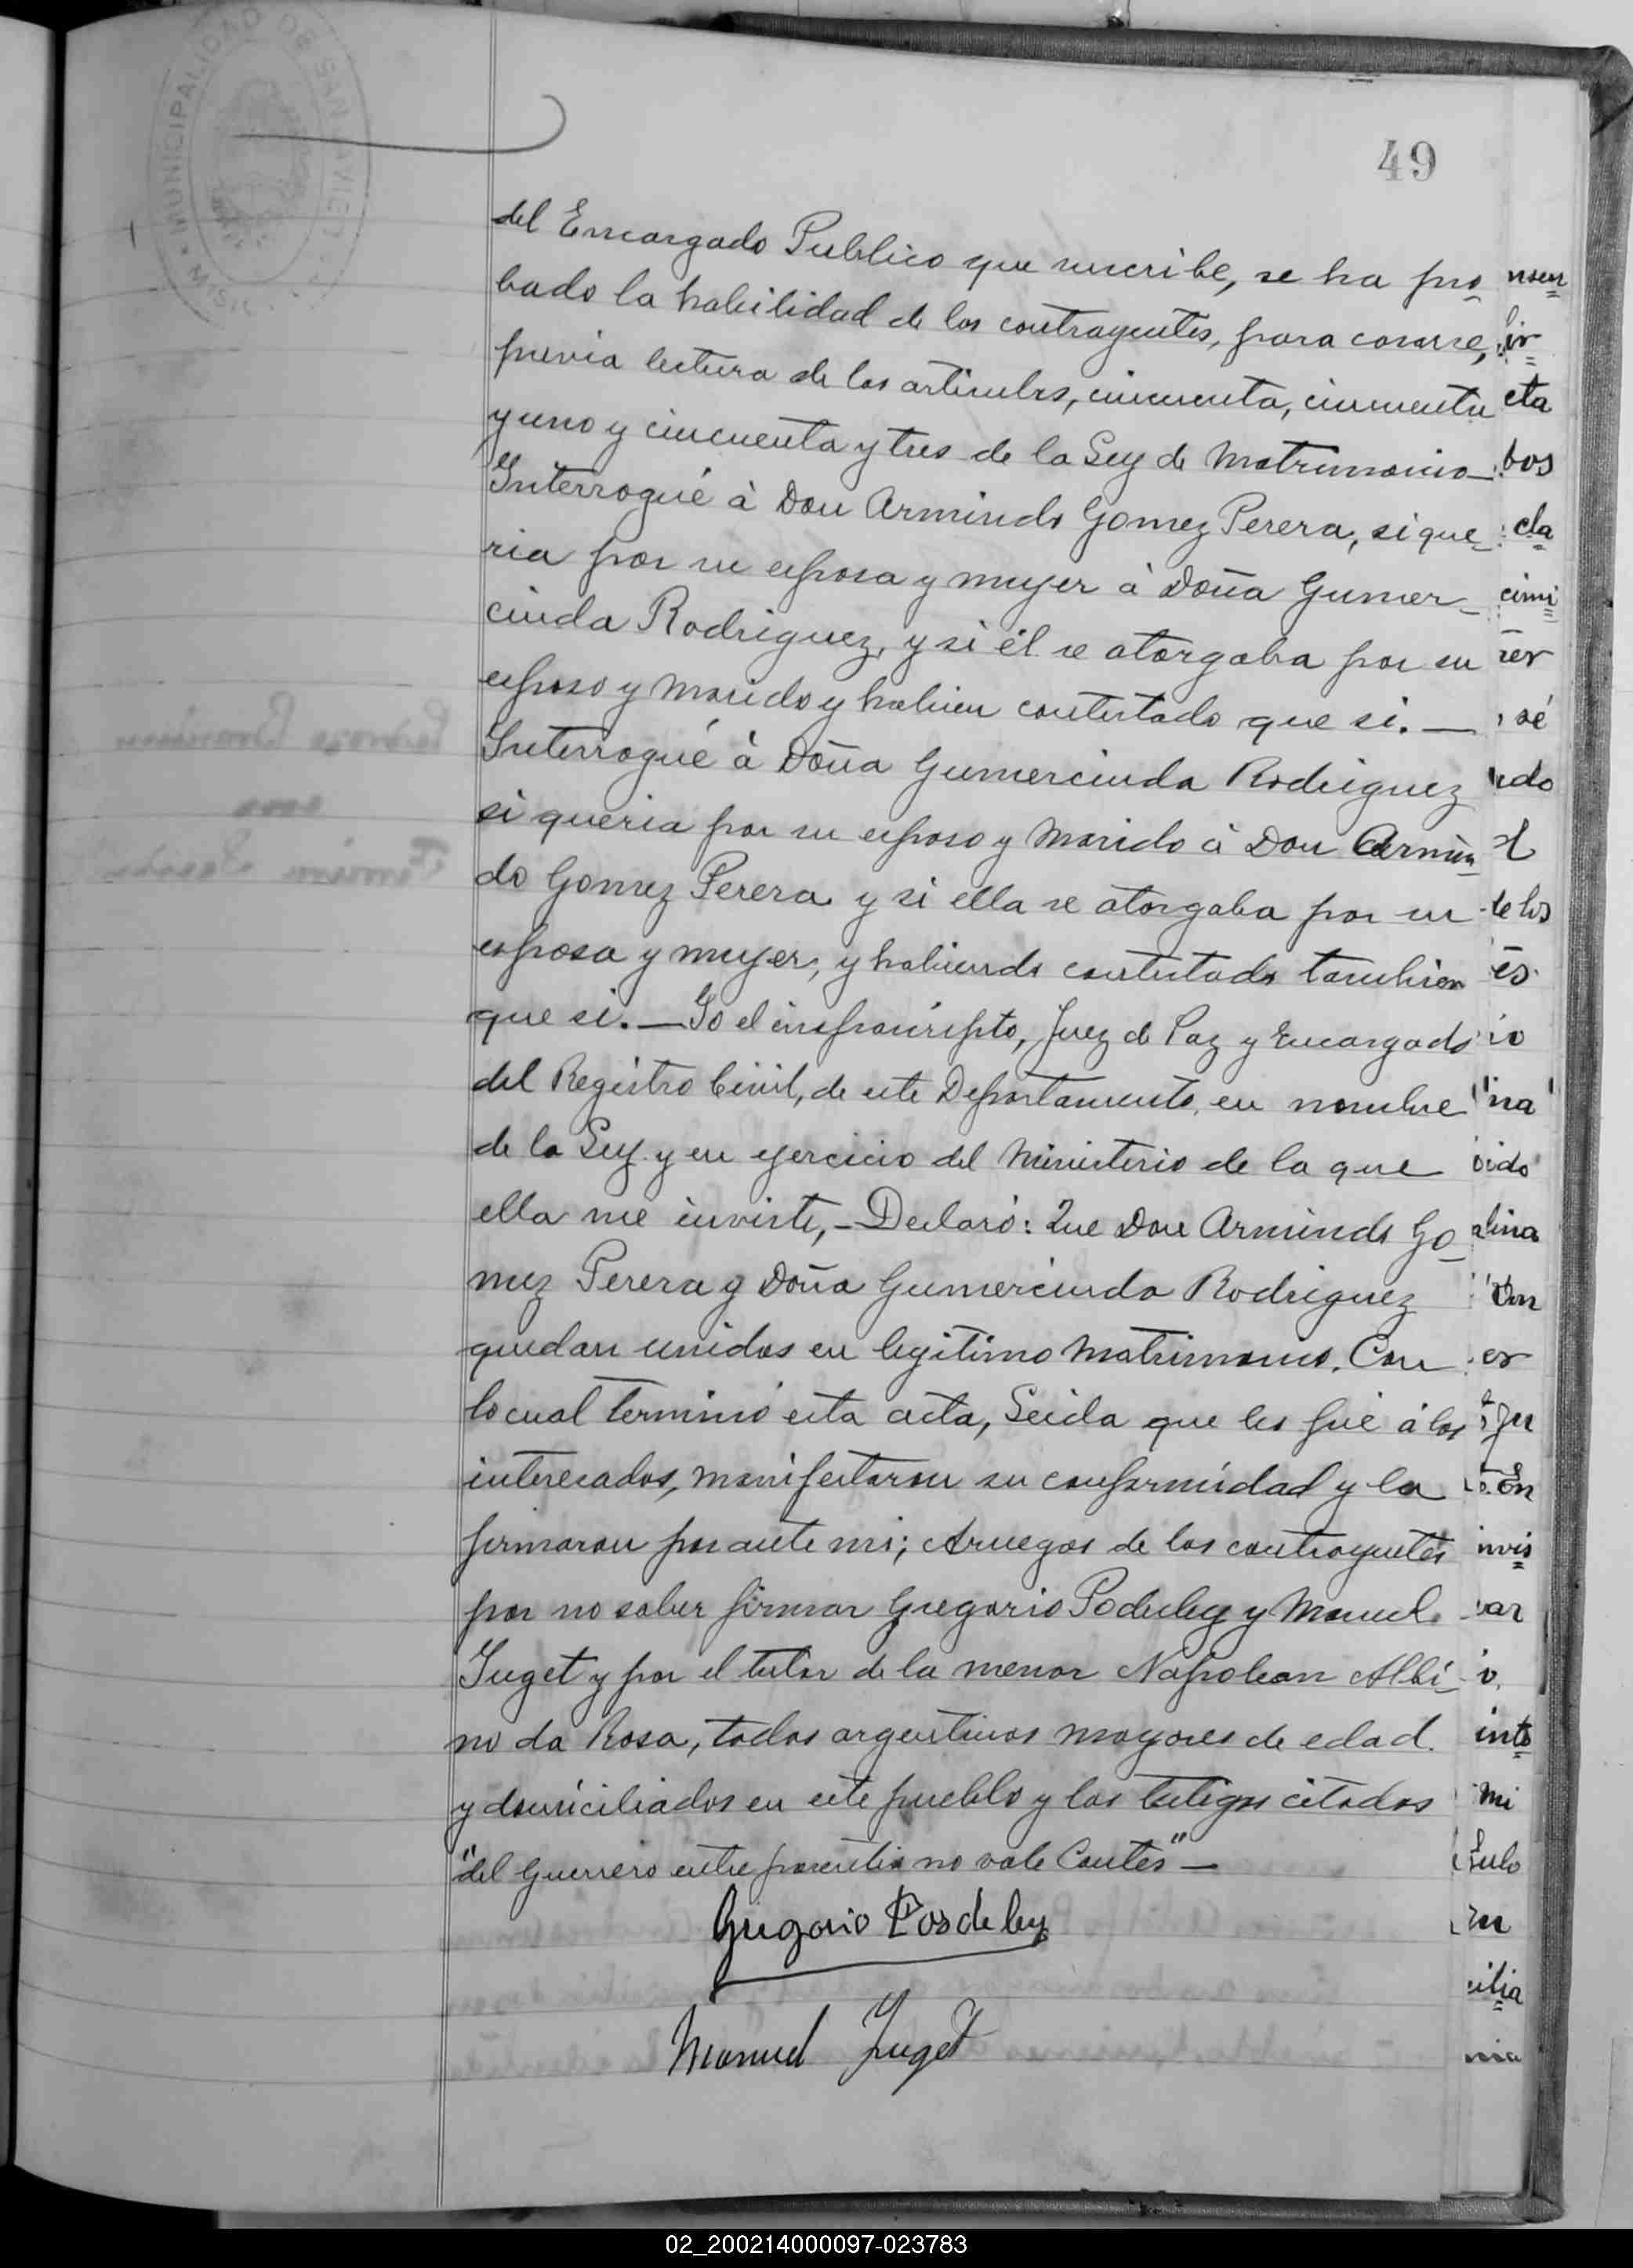 MUNICIPALIDAD DE SAN JAVIER
49
del Encargado Publico que suscribe, se ha pro-
bado la habilidad de los contrayentes, para casarse,
previa lectura de los articulos, cincuenta, cincuenta
y uno y cincuenta y tres de la Ley de Matrimonio—
Interrogué à Don Armindo Gomez Perera, si que-
ria por su esposa y mujer à Doña Gumer-
cinda Rodriguez, y si él se otorgaba por su
esposo y marido y habien contestado que si. —
Interrogué à Doña Gumercinda Rodriguez
si queria por su esposo y marido à Don Armin-
do Gomez Perera y si ella se otorgaba por su
esposa y mujer, y habiendo contestado tambien
que si. — Yo el infrascripto, Juez de Paz y Encargado
del Registro Civil, de este Departamento, en nombre
de la Ley y en ejercicio del Ministerio de la que
ella me inviste, — Declaró: Que Don Armindo Go-
mez Perera y Doña Gumercinda Rodriguez
quedan unidos en legitimo matrimonio. Con
lo cual terminó esta acta, Leida que les fué á los
interesados, manifestaron su conformidad y la
firmaron por ante mi; Aruegos de los contrayentes
por no saber firmar Gregorio Podeley y Manuel
Juget y por el tutor de la menor Napoleon Albi-
no da Rosa, todos argentinos mayores de edad
y domiciliados en este pueblo y los testigos citados
"del Guerrero entre parentesis no vale Contes" —
Gregorio Posdeley
Manuel Juget
nsen
eta
bos
cla
cimi
rer
sé
ndo
el
de los
es.
io
na
oido
alina
Don
er
En
invis
var
o.
into
mi
culo
En
cilia
nia
02_200214000097-023783